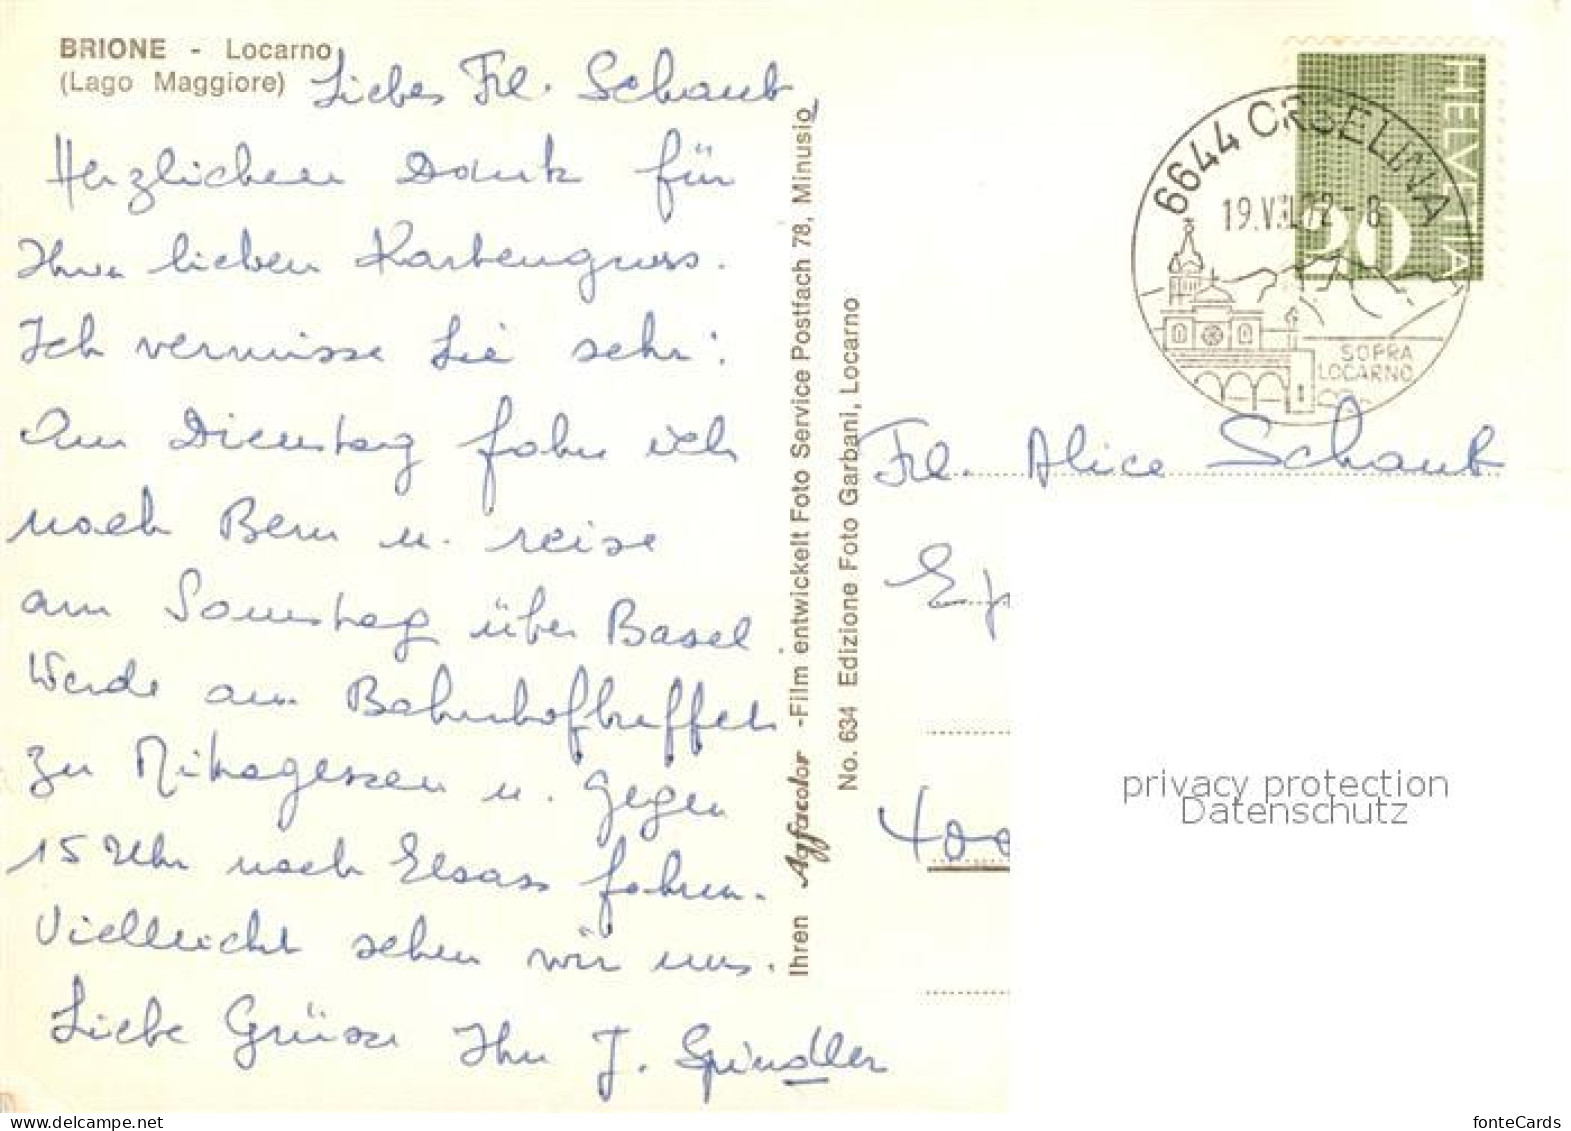 BRIONE - Locarno
(Lago Maggiore)
Liebes Frl. Schaub,
Herzlichen Dank für
Ihren lieben Kartengruss.
Ich vermisse Sie sehr!
Am Dienstag fahre ich
nach Bern u. reise
am Sonntag über Basel.
Werde am Bahnhofbuffet
zu Mittagessen u. gegen
15 Uhr nach Elsass fahren.
Vielleicht sehen wir uns.
Liebe Grüsse Ihre J. Spindler
Ihren Agfacolor -Film entwickelt Foto Service Postfach 78, Minusio
No. 634 Edizione Foto Garbani, Locarno
HELVETIA
20
6644 ORSELINA
SOPRA
LOCARNO
Frl. Alice Schaub
400
privacy protection
Datenschutz
fonteCards